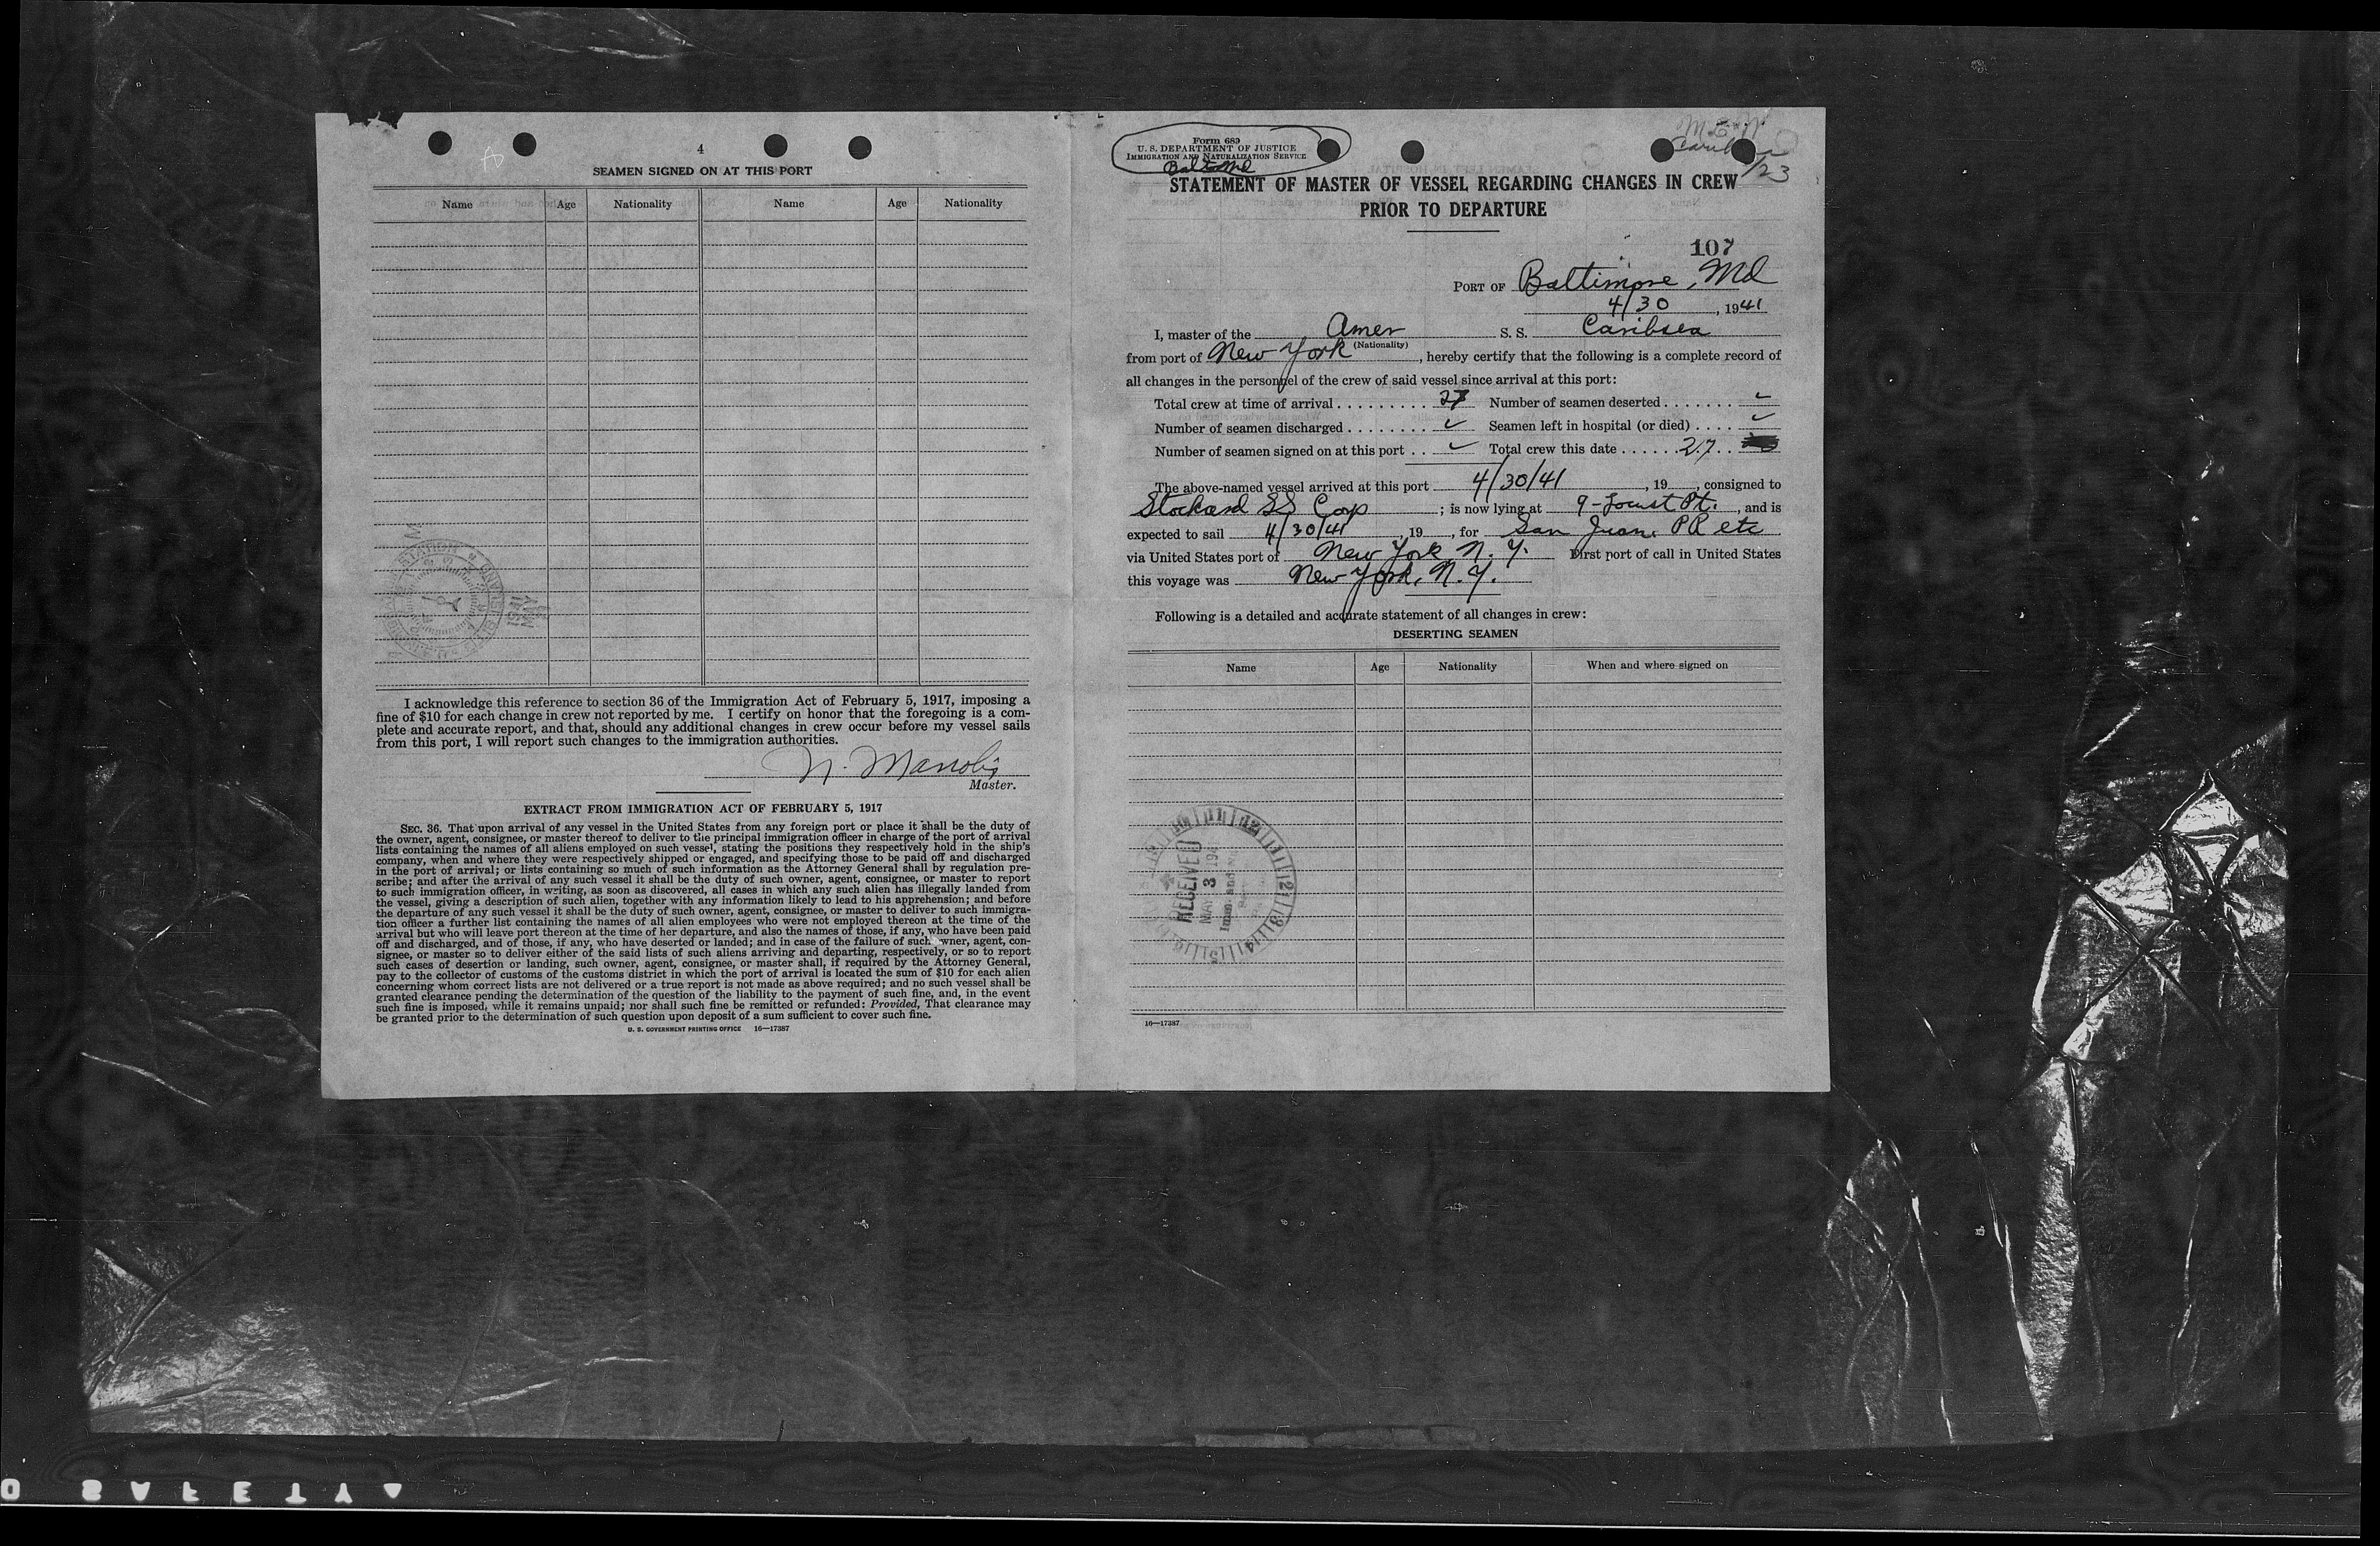 4
SEAMEN SIGNED ON AT THIS PORT
Name Age Nationality Name Age Nationality
I acknowledge this reference to section 36 of the Immigration Act of February 5, 1917, imposing a
fine of $10 for each change in crew not reported by me. I certify on honor that the foregoing is a com-
plete and accurate report, and that, should any additional changes in crew occur before my vessel sails
from this port, I will report such changes to the immigration authorities.
N. Manolis
Master.
EXTRACT FROM IMMIGRATION ACT OF FEBRUARY 5, 1917
SEC. 36. That upon arrival of any vessel in the United States from any foreign port or place it shall be the duty of
the owner, agent, consignee, or master thereof to deliver to the principal immigration officer in charge of the port of arrival
lists containing the names of all aliens employed on such vessel, stating the positions they respectively hold in the ship's
company, when and where they were respectively shipped or engaged, and specifying those to be paid off and discharged
in the port of arrival; or lists containing so much of such information as the Attorney General shall by regulation pre-
scribe; and after the arrival of any such vessel it shall be the duty of such owner, agent, consignee, or master to report
to such immigration officer, in writing, as soon as discovered, all cases in which any such alien has illegally landed from
the vessel, giving a description of such alien, together with any information likely to lead to his apprehension; and before
the departure of any such vessel it shall be the duty of such owner, agent, consignee, or master to deliver to such immigra-
tion officer a further list containing the names of all alien employees who were not employed thereon at the time of the
arrival but who will leave port thereon at the time of her departure, and also the names of those, if any, who have been paid
off and discharged, and of those, if any, who have deserted or landed; and in case of the failure of such owner, agent, con-
signee, or master so to deliver either of the said lists of such aliens arriving and departing, respectively, or so to report
such cases of desertion or landing, such owner, agent, consignee, or master shall, if required by the Attorney General,
pay to the collector of customs of the customs district in which the port of arrival is located the sum of $10 for each alien
concerning whom correct lists are not delivered or a true report is not made as above required; and no such vessel shall be
granted clearance pending the determination of the question of the liability to the payment of such fine, and, in the event
such fine is imposed, while it remains unpaid; nor shall such fine be remitted or refunded: Provided, That clearance may
be granted prior to the determination of such question upon deposit of a sum sufficient to cover such fine.
U. S. GOVERNMENT PRINTING OFFICE 16—17387
Form 689
U. S. DEPARTMENT OF JUSTICE
IMMIGRATION AND NATURALIZATION SERVICE
Balto Md
STATEMENT OF MASTER OF VESSEL REGARDING CHANGES IN CREW
PRIOR TO DEPARTURE
107
PORT OF Baltimore, Md
4/30, 1941
I, master of the Amer S. S. Caribsea
(Nationality)
from port of New York, hereby certify that the following is a complete record of
all changes in the personnel of the crew of said vessel since arrival at this port:
Total crew at time of arrival 27 Number of seamen deserted ✓
Number of seamen discharged ✓ Seamen left in hospital (or died) ✓
Number of seamen signed on at this port ✓ Total crew this date 27
The above-named vessel arrived at this port 4/30/41, 19, consigned to
Stockard SS Corp; is now lying at 9-Locust Pt., and is
expected to sail 4/30/41, 19, for San Juan, PR etc
via United States port of New York N. Y. First port of call in United States
this voyage was New York, N. Y.
Following is a detailed and accurate statement of all changes in crew:
DESERTING SEAMEN
Name Age Nationality When and where signed on
RECEIVED
MAY 3
16—17387
SAFETY